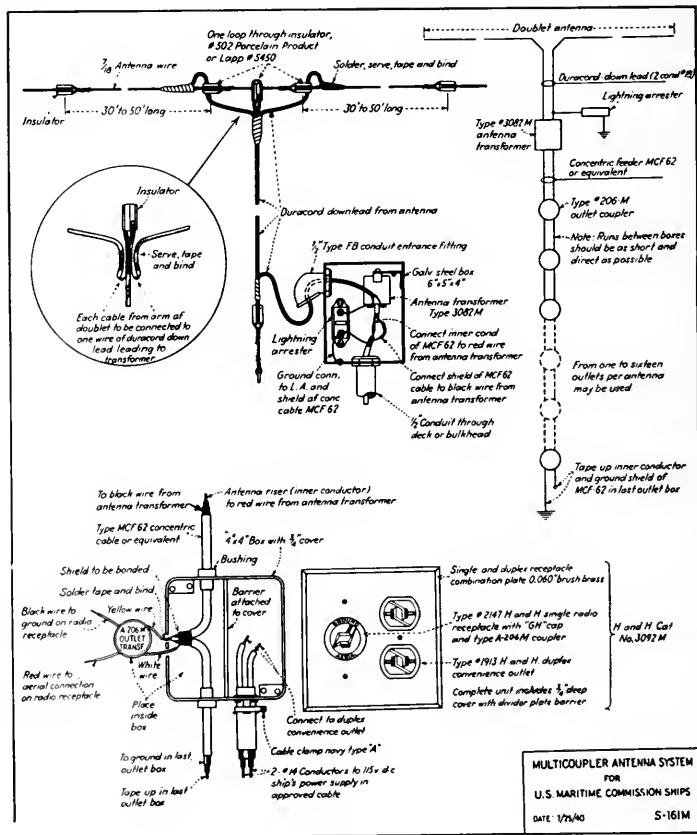 One loop through insulator,
#502 Porcelain Product
or Lapp #5450
7/18 Antenna wire
Solder, serve, tape and bind
Insulator
30' to 50' long
30' to 50' long
Insulator
Serve, tape
and bind
Each cable from arm of
doublet to be connected to
one wire of duracord down
lead leading to
transformer
Duracord downlead from antenna
1/2" Type FB conduit entrance fitting
Galv steel box
6"x5"x4"
Antenna transformer
Type 3082M
Lightning
arrester
Connect inner cond
of MCF 62 to red wire
from antenna transformer
Ground conn.
to L.A. and
shield of conc
cable MCF 62
Connect shield of MCF62
cable to black wire from
antenna transformer
1/2" Conduit through
deck or bulkhead
Doublet antenna
Duracord down lead (2 cond #18)
Lightning
arrester
Type #3082M
antenna
transformer
Concentric feeder MCF 62
or equivalent
Type #206-M
outlet coupler
Note: Runs between boxes
should be as short and
direct as possible
From one to sixteen
outlets per antenna
may be used
Tape up inner conductor
and ground shield of
MCF 62 in last outlet box
To black wire from
antenna transformer
Antenna riser (inner conductor) to
to red wire from antenna transformer
Type MCF 62 concentric
cable or equivalent
4"x4" Box with 3/4" cover
Bushing
Shield to be bonded
Solder tape and bind
Barrier
attached
to cover
Black wire to
ground on radio
receptacle
Yellow wire
A 206 M
OUTLET
TRANSF
White
wire
Red wire to
aerial connection
on radio receptacle
Place
inside
box
Connect to duplex
convenience outlet
Cable clamp navy type "A"
To ground in last
outlet box
Tape up in last
outlet box
2-#14 Conductors to 115v d-c
ship's power supply in
approved cable
GROUND
AERIAL
Single and duplex receptacle
combination plate 0.060" brush brass
Type #2147 H and H single radio
receptacle with "GH" cap
and type A-206M coupler
Type #1913 H and H. duplex
convenience outlet
Complete unit includes 3/4" deep
cover with divider plate barrier
H and H Cat
No. 3092 M
MULTICOUPLER ANTENNA SYSTEM
FOR
U.S. MARITIME COMMISSION SHIPS
DATE 7/25/40 S-161M